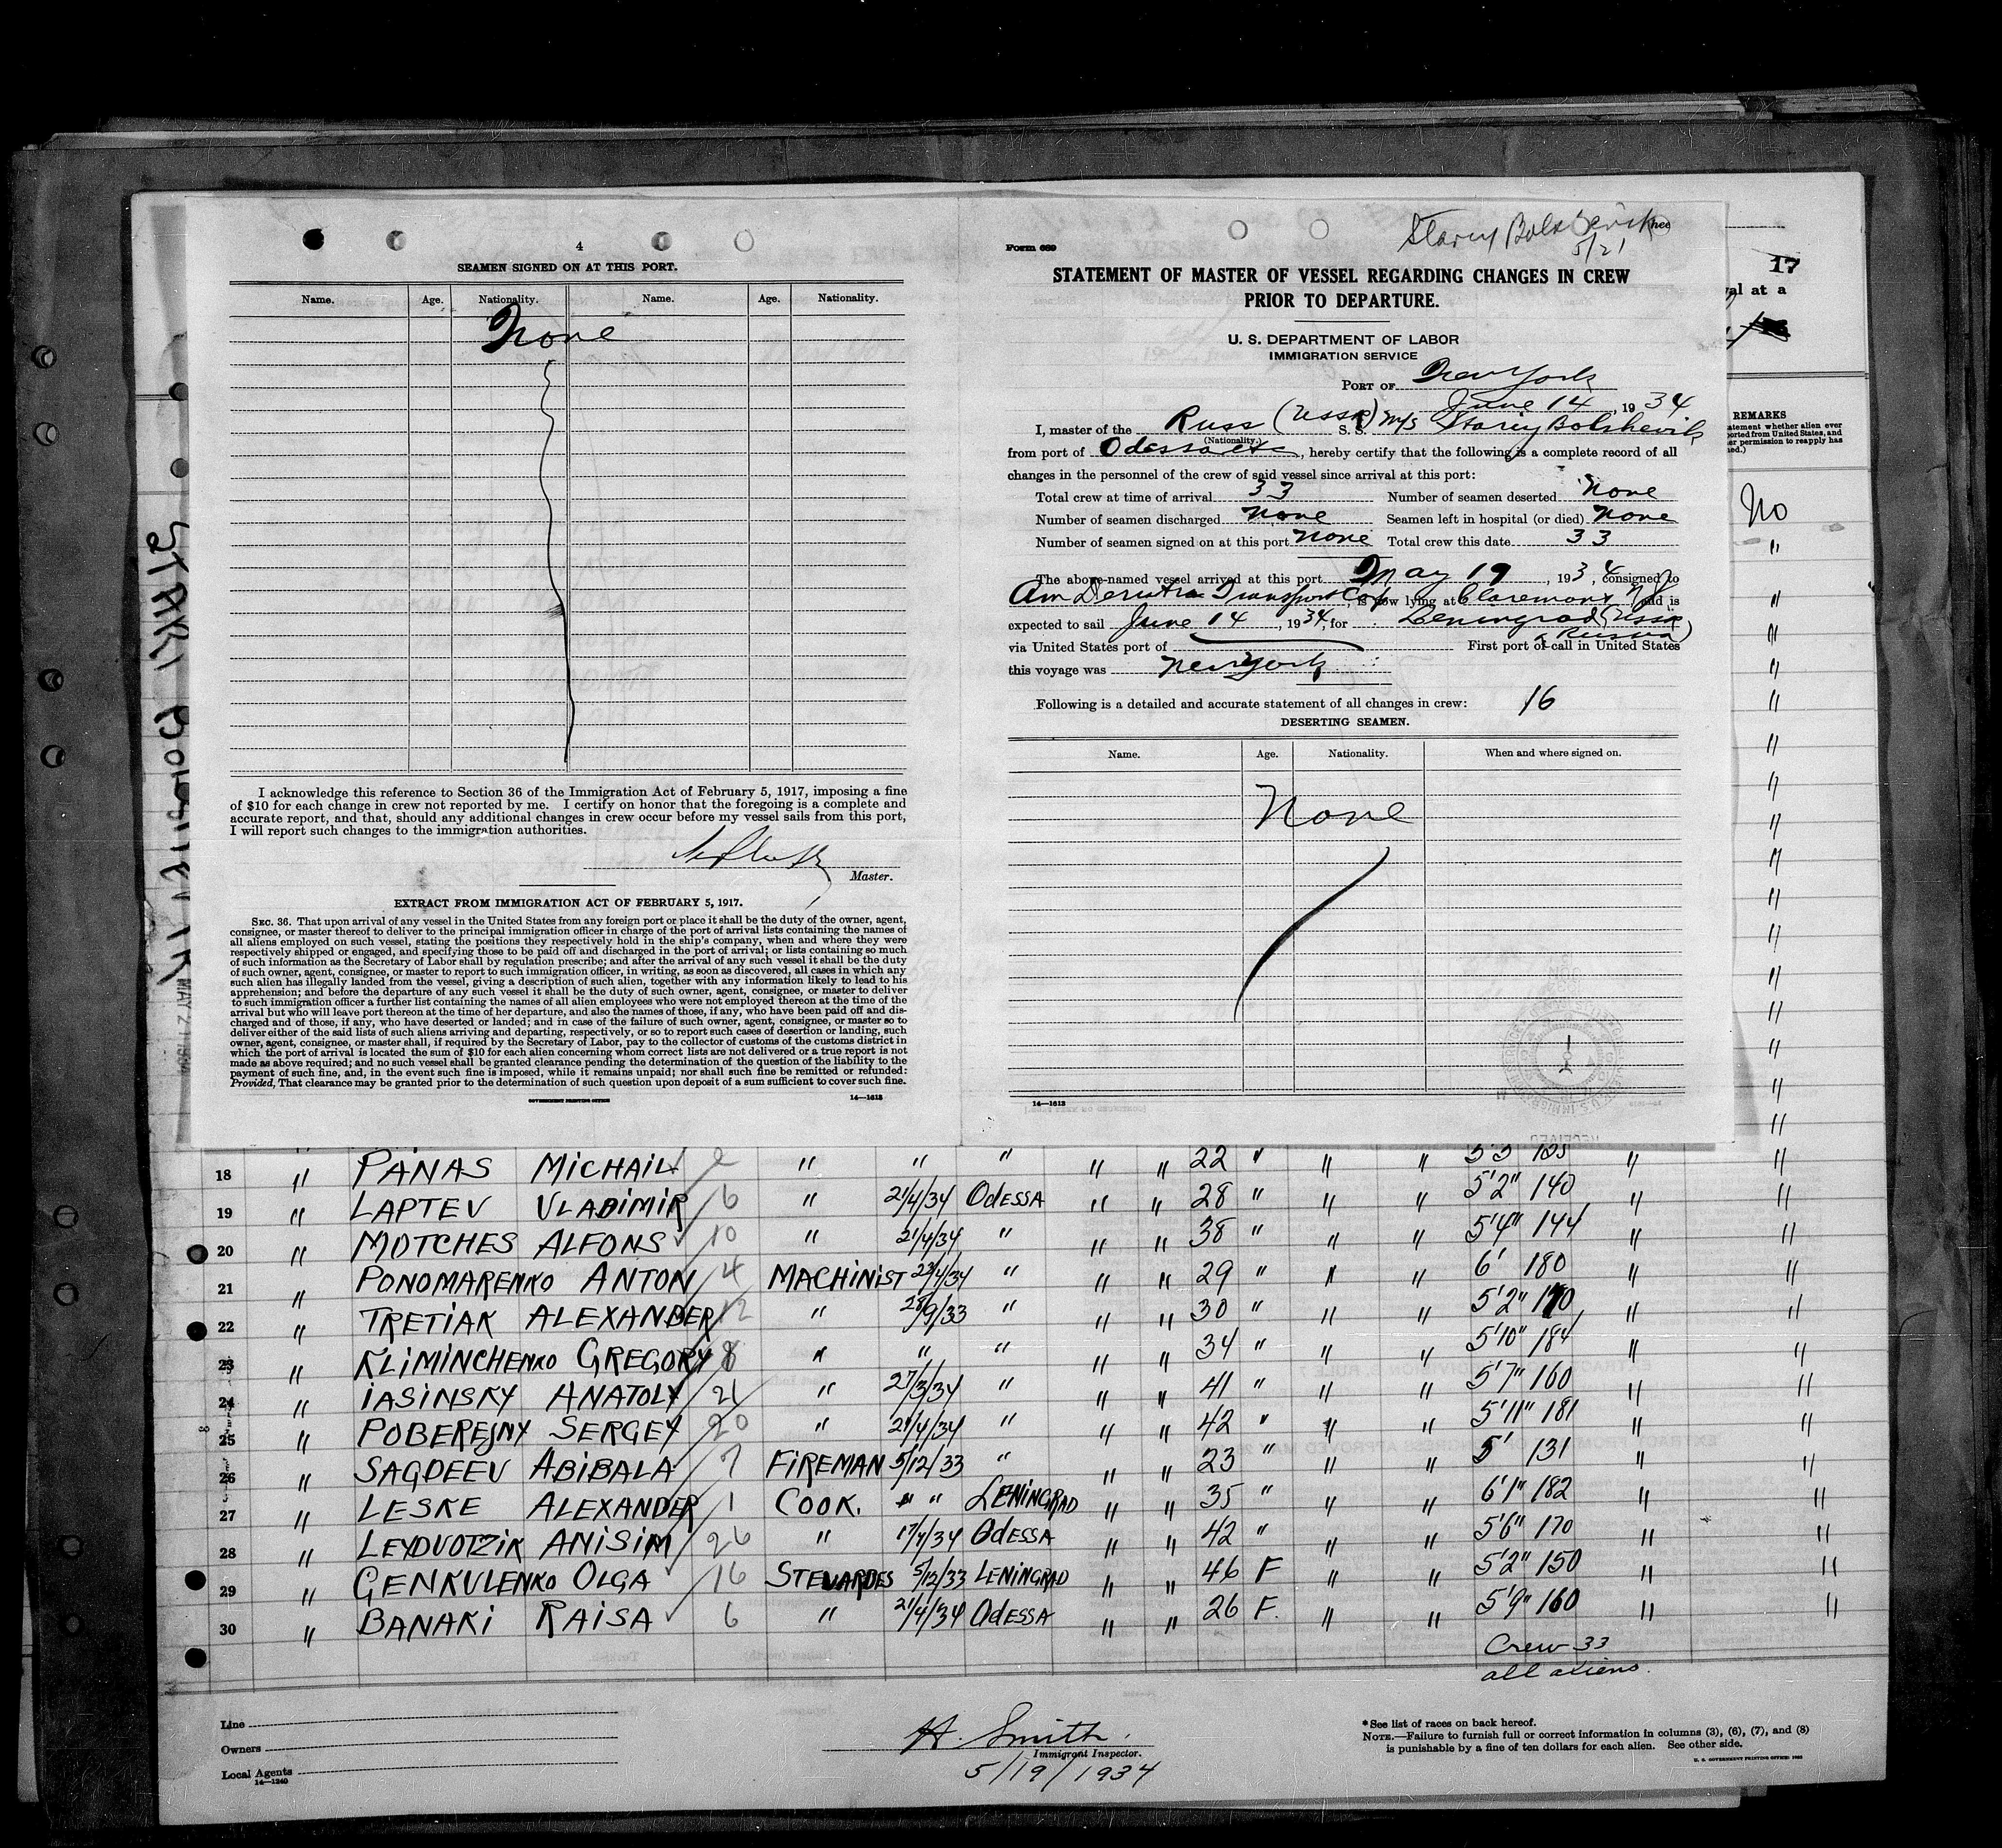 4
SEAMEN SIGNED ON AT THIS PORT.
Name. Age. Nationality. Name. Age. Nationality.
None
I acknowledge this reference to Section 36 of the Immigration Act of February 5, 1917, imposing a fine
of $10 for each change in crew not reported by me. I certify on honor that the foregoing is a complete and
accurate report, and that, should any additional changes in crew occur before my vessel sails from this port,
I will report such changes to the immigration authorities.
Master.
EXTRACT FROM IMMIGRATION ACT OF FEBRUARY 5, 1917.
SEC. 36. That upon arrival of any vessel in the United States from any foreign port or place it shall be the duty of the owner, agent,
consignee, or master thereof to deliver to the principal immigration officer in charge of the port of arrival lists containing the names of
all aliens employed on such vessel, stating the positions they respectively hold in the ship's company, when and where they were
respectively shipped or engaged, and specifying those to be paid off and discharged in the port of arrival; or lists containing so much
of such information as the Secretary of Labor shall by regulation prescribe; and after the arrival of any such vessel it shall be the duty
of such owner, agent, consignee, or master to report to such immigration officer, in writing, as soon as discovered, all cases in which any
such alien has illegally landed from the vessel, giving a description of such alien, together with any information likely to lead to his
apprehension; and before the departure of any such vessel it shall be the duty of such owner, agent, consignee, or master to deliver
to such immigration officer a further list containing the names of all alien employees who were not employed thereon at the time of the
arrival but who will leave port thereon at the time of her departure, and also the names of those, if any, who have been paid off and dis-
charged and of those, if any, who have deserted or landed; and in case of the failure of such owner, agent, consignee, or master so to
deliver either of the said lists of such aliens arriving and departing, respectively, or so to report such cases of desertion or landing, such
owner, agent, consignee, or master shall, if required by the Secretary of Labor, pay to the collector of customs of the customs district in
which the port of arrival is located the sum of $10 for each alien concerning whom correct lists are not delivered or a true report is not
made as above required; and no such vessel shall be granted clearance pending the determination of the question of the liability to the
payment of such fine, and, in the event such fine is imposed, while it remains unpaid; nor shall such fine be remitted or refunded:
Provided, That clearance may be granted prior to the determination of such question upon deposit of a sum sufficient to cover such fine.
GOVERNMENT PRINTING OFFICE 14—1613
Stariy Bolshevik
5/21
Form 689
STATEMENT OF MASTER OF VESSEL REGARDING CHANGES IN CREW
PRIOR TO DEPARTURE.
U. S. DEPARTMENT OF LABOR
IMMIGRATION SERVICE
PORT OF New York
June 14, 1934
I, master of the Russ (USSR) S. S. M/S Stariy Bolshevik
(Nationality.)
from port of Odessa etc, hereby certify that the following is a complete record of all
changes in the personnel of the crew of said vessel since arrival at this port:
Total crew at time of arrival 33 Number of seamen deserted None
Number of seamen discharged None Seamen left in hospital (or died) None
Number of seamen signed on at this port None Total crew this date 33
The above-named vessel arrived at this port May 19, 1934, consigned to
Am Derutra Transport Corp, is now lying at Claremont N J and is
expected to sail June 14, 1934, for Leningrad (USSR
Russia)
via United States port of First port of call in United States
this voyage was New York
Following is a detailed and accurate statement of all changes in crew: 16
DESERTING SEAMEN.
Name. Age. Nationality. When and where signed on.
None
14—1613
17
val at a
REMARKS
atement whether alien ever
ported from United States, and
er permission to reapply has
ned.)
No
STARY BOLSHEVIK
MAY 21 1934
18 " PANAS MICHAIL 2 " " " " " 22 " " " 5'5 135 " "
19 " LAPTEV VLADIMIR 6 " 21/4/34 ODESSA " " 28 " " " 5'2" 140 " "
20 " MOTCHES ALFONS 10 " 21/4/34 " " " 38 " " " 5'4" 144 " "
21 " PONOMARENKO ANTON 4 MACHINIST 23/4/34 " " " 29 " " " 6' 180 " "
22 " TRETIAK ALEXANDER 12 " 28/9/33 " " " 30 " " " 5'2" 170 " "
23 " KLIMINCHENKO GREGORY 8 " " " " " 34 " " " 5'10" 184 " "
24 " IASINSKY ANATOLY 21 " 27/3/34 " " " 41 " " " 5'7" 160 " "
25 " POBEREJNY SERGEY 20 " 21/4/34 " " " 42 " " " 5'11" 181 " "
26 " SAGDEEV ABIBALA 7 FIREMAN 5/12/33 " " " 23 " " " 5' 131 " "
27 " LESKE ALEXANDER 1 COOK. " " LENINGRAD " " 35 " " " 6'1" 182 " "
28 " LEYDVOTZIK ANISIM 26 " 17/4/34 ODESSA " " 42 " " " 5'6" 170 " "
29 " GENKULENKO OLGA 16 STEVARDES 5/12/33 LENINGRAD " " 46 F " " 5'2" 150 " "
30 " BANAKI RAISA 6 " 21/4/34 ODESSA " " 26 F. " " 5'9" 160 " "
Crew 33
all aliens.
Line
Owners
Local Agents
14—1240
H. Smith
Immigrant Inspector.
5/19/1934
*See list of races on back hereof.
NOTE.—Failure to furnish full or correct information in columns (3), (6), (7), and (8)
is punishable by a fine of ten dollars for each alien. See other side.